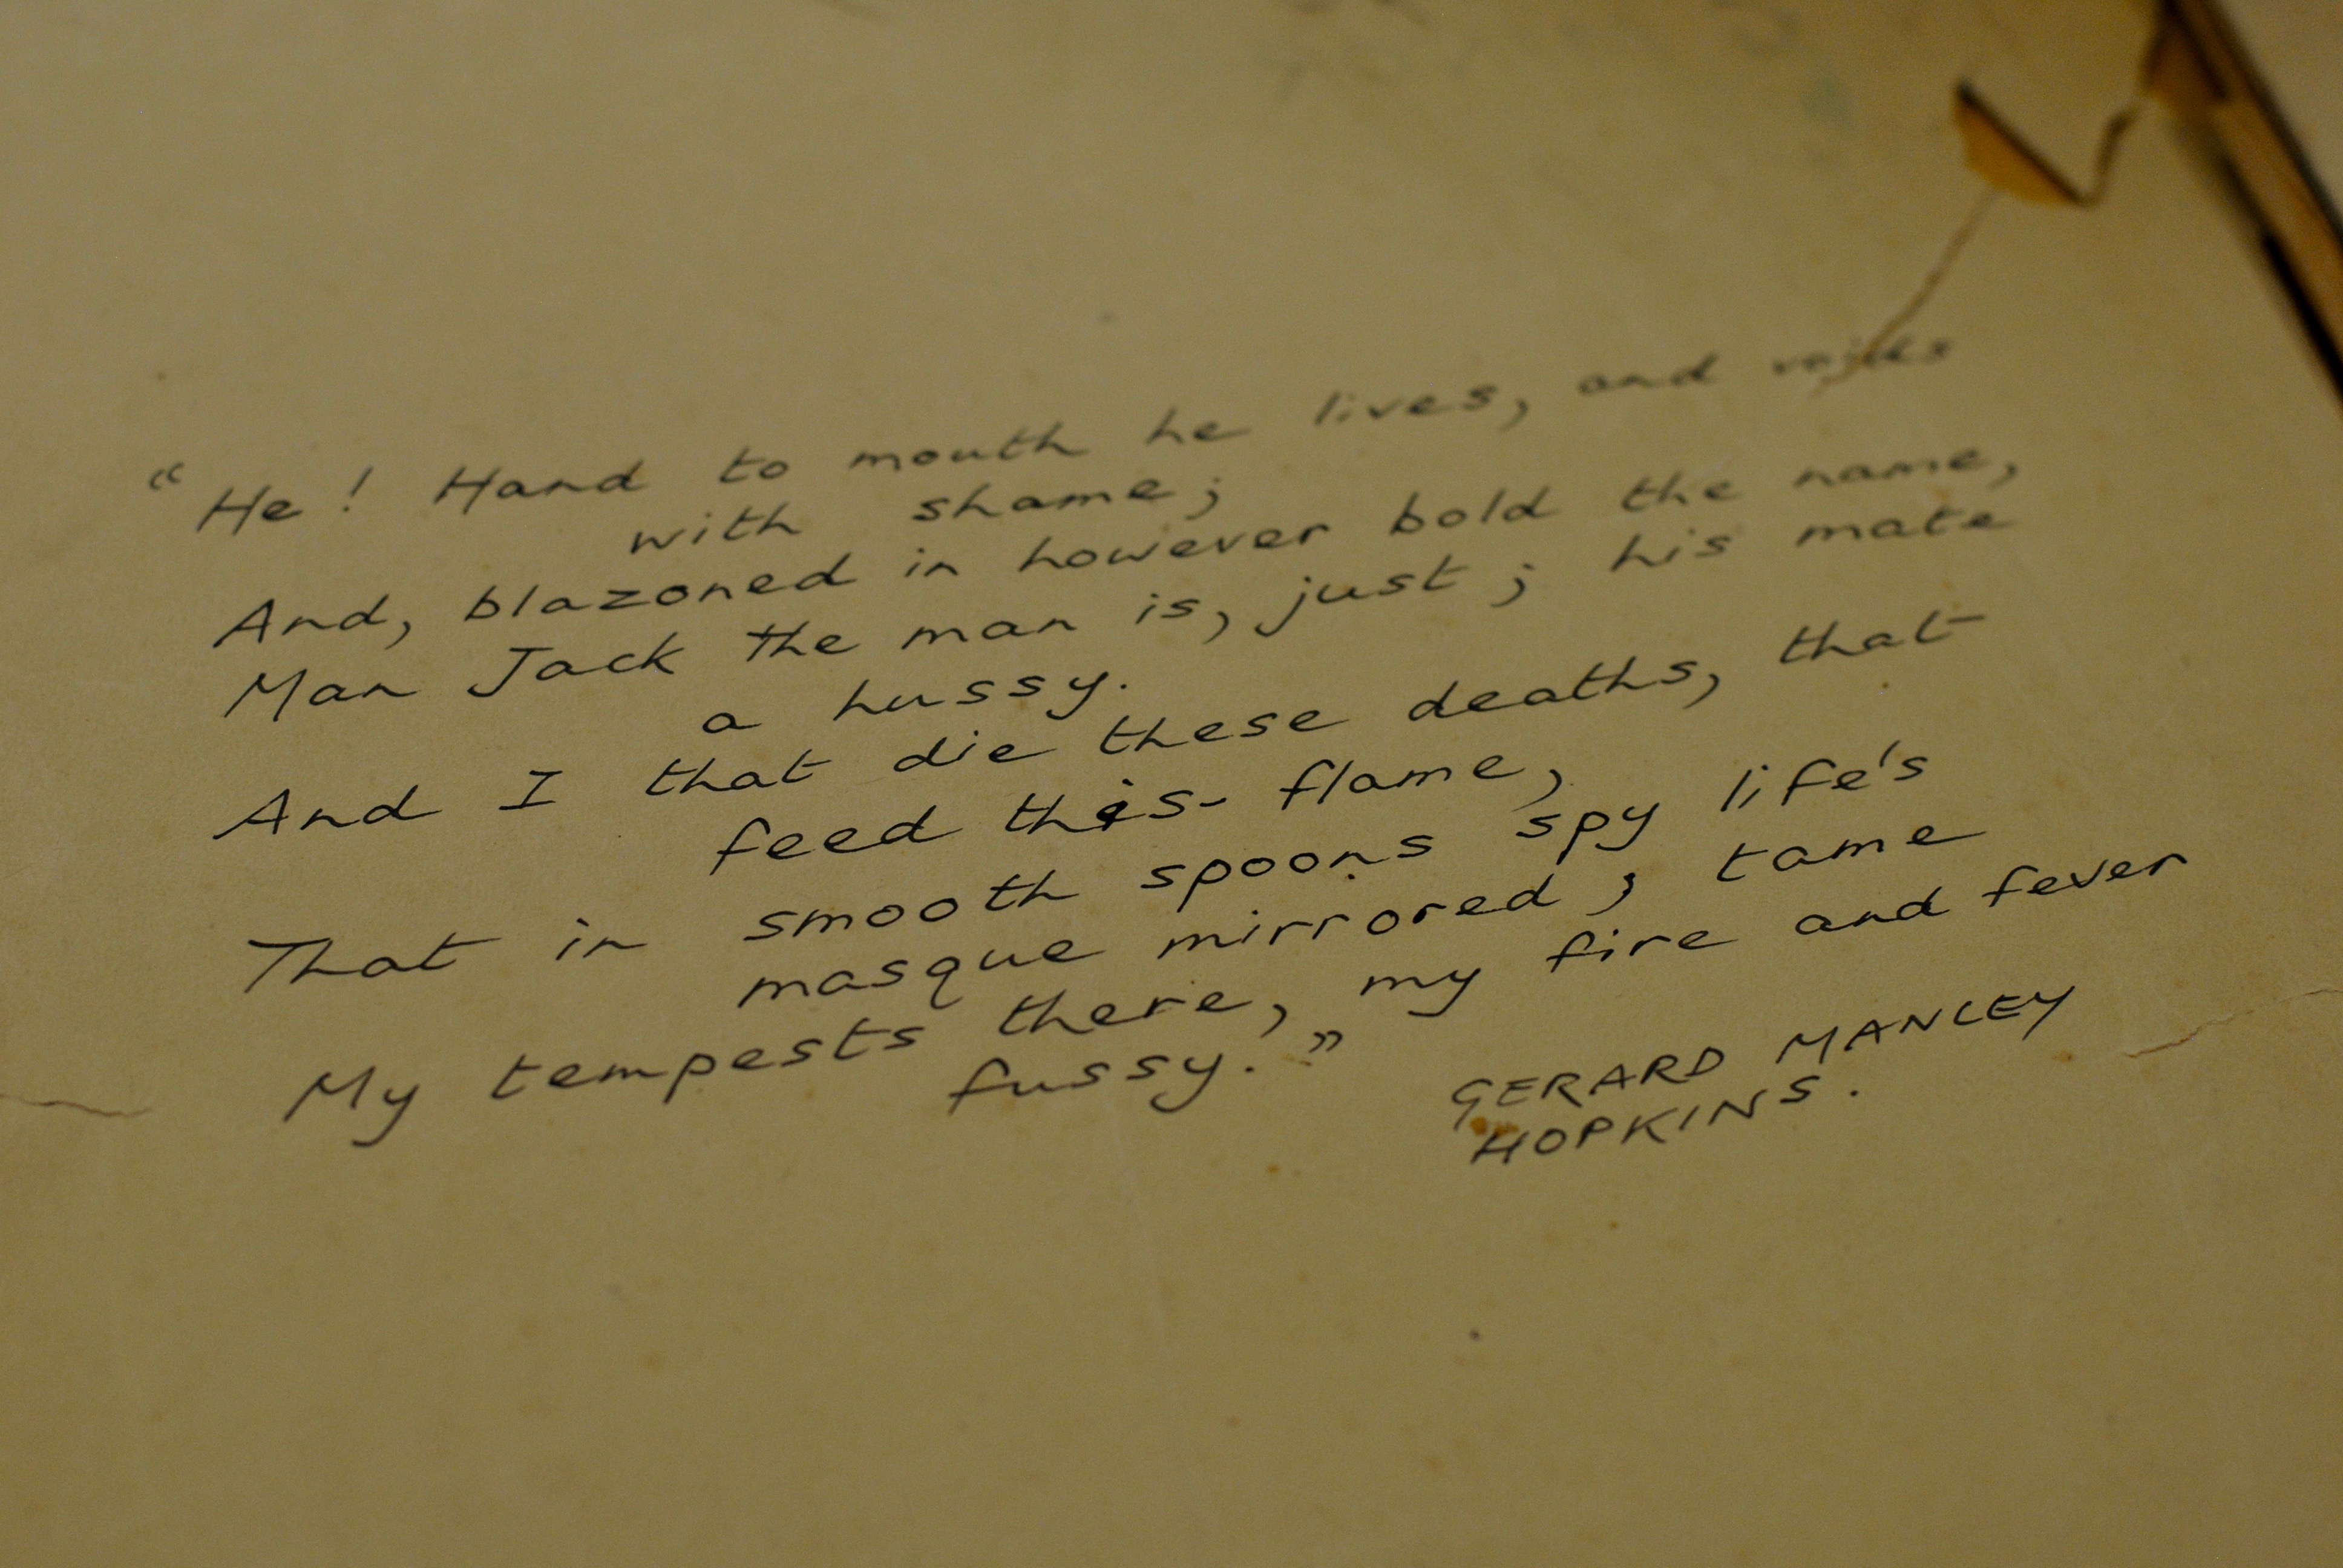 “He! Hand to mouth he lives, and voids
with shame;
And, blazoned in however bold the name,
Man Jack the man is, just; his mate
a hussy.
And I that die these deaths, that
feed this flame,
That in smooth spoons spy life's
masque mirrored; tame
My tempests there, my fire and fever
fussy.”
GERARD MANLEY
HOPKINS.